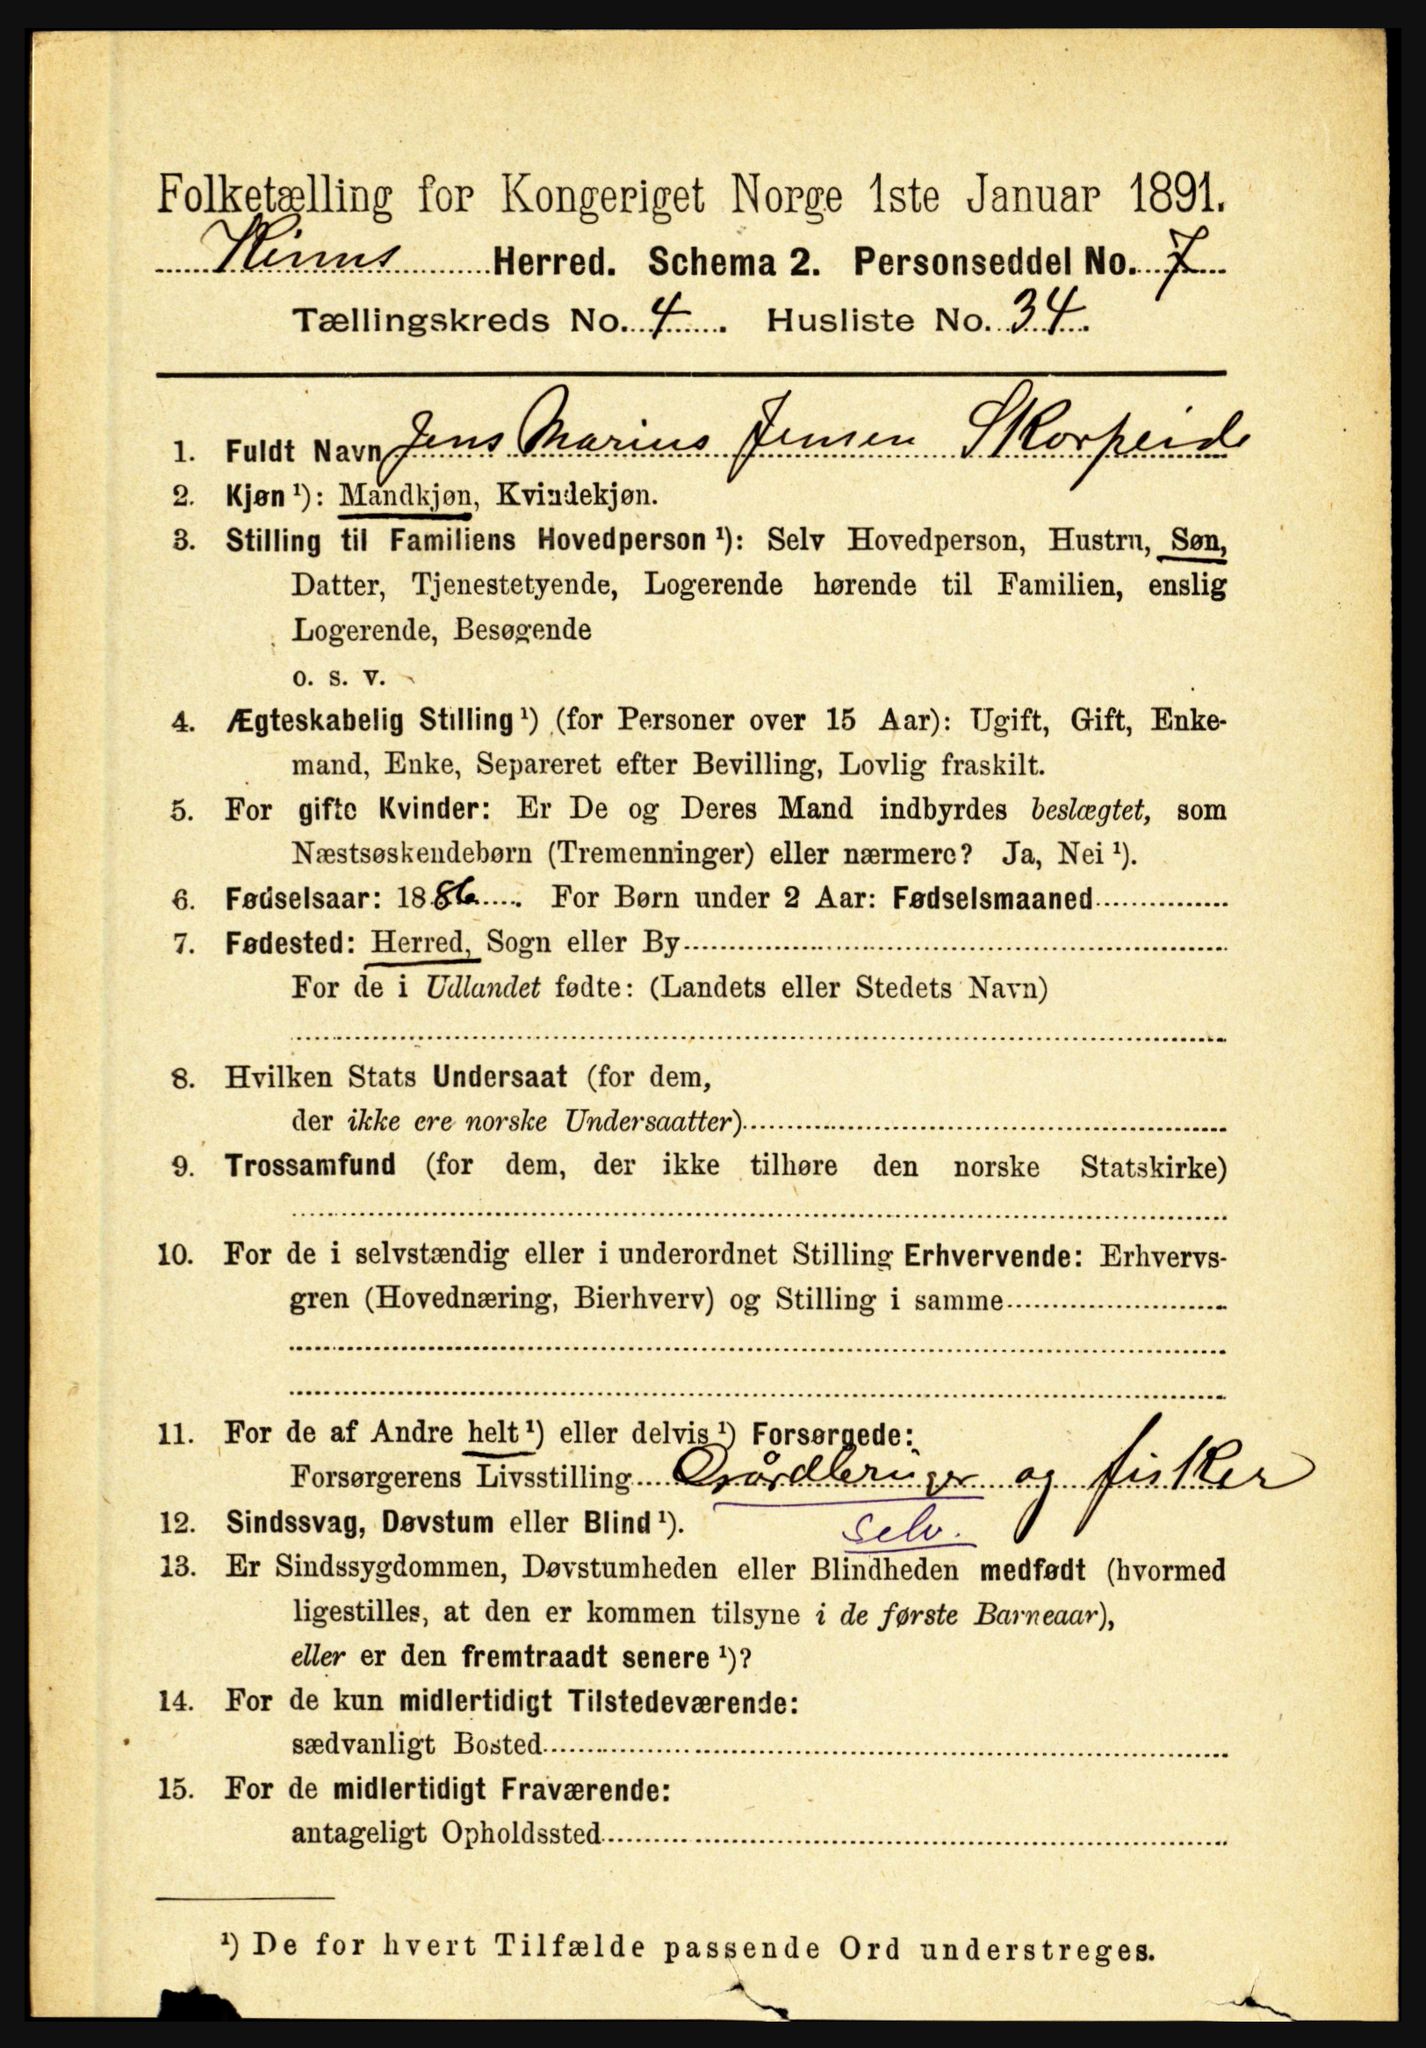 Folketælling for Kongeriget Norge 1ste Januar 1891.
Kinns Herred. Schema 2. Personseddel No. 7
Tællingskreds No. 4. Husliste No. 34.
1. Fuldt Navn Jens Marius Jensen Skorpeide
2. Kjøn ¹): Mandkjøn, Kvindekjøn.
3. Stilling til Familiens Hovedperson ¹): Selv Hovedperson, Hustru, Søn,
Datter, Tjenestetyende, Logerende hørende til Familien, enslig
Logerende, Besøgende
o. s. v.
4. Ægteskabelig Stilling ¹) (for Personer over 15 Aar): Ugift, Gift, Enke-
mand, Enke, Separeret efter Bevilling, Lovlig fraskilt.
5. For gifte Kvinder: Er De og Deres Mand indbyrdes beslægtet, som
Næstsøskendebørn (Tremenninger) eller nærmere? Ja, Nei ¹).
6. Fødselsaar: 1886. For Børn under 2 Aar: Fødselsmaaned
7. Fødested: Herred, Sogn eller By
For de i Udlandet fødte: (Landets eller Stedets Navn)
8. Hvilken Stats Undersaat (for dem,
der ikke ere norske Undersaatter)
9. Trossamfund (for dem, der ikke tilhøre den norske Statskirke)
10. For de i selvstændig eller i underordnet Stilling Erhvervende: Erhvervs-
gren (Hovednæring, Bierhverv) og Stilling i samme
11. For de af Andre helt ¹) eller delvis ¹) Forsørgede:
Forsørgerens Livsstilling Gårdbruger og fisker
12. Sindssvag, Døvstum eller Blind ¹). selv.
13. Er Sindssygdommen, Døvstumheden eller Blindheden medfødt (hvormed
ligestilles, at den er kommen tilsyne i de første Barneaar),
eller er den fremtraadt senere ¹)?
14. For de kun midlertidigt Tilstedeværende:
sædvanligt Bosted
15. For de midlertidigt Fraværende:
antageligt Opholdssted
¹) De for hvert Tilfælde passende Ord understreges.